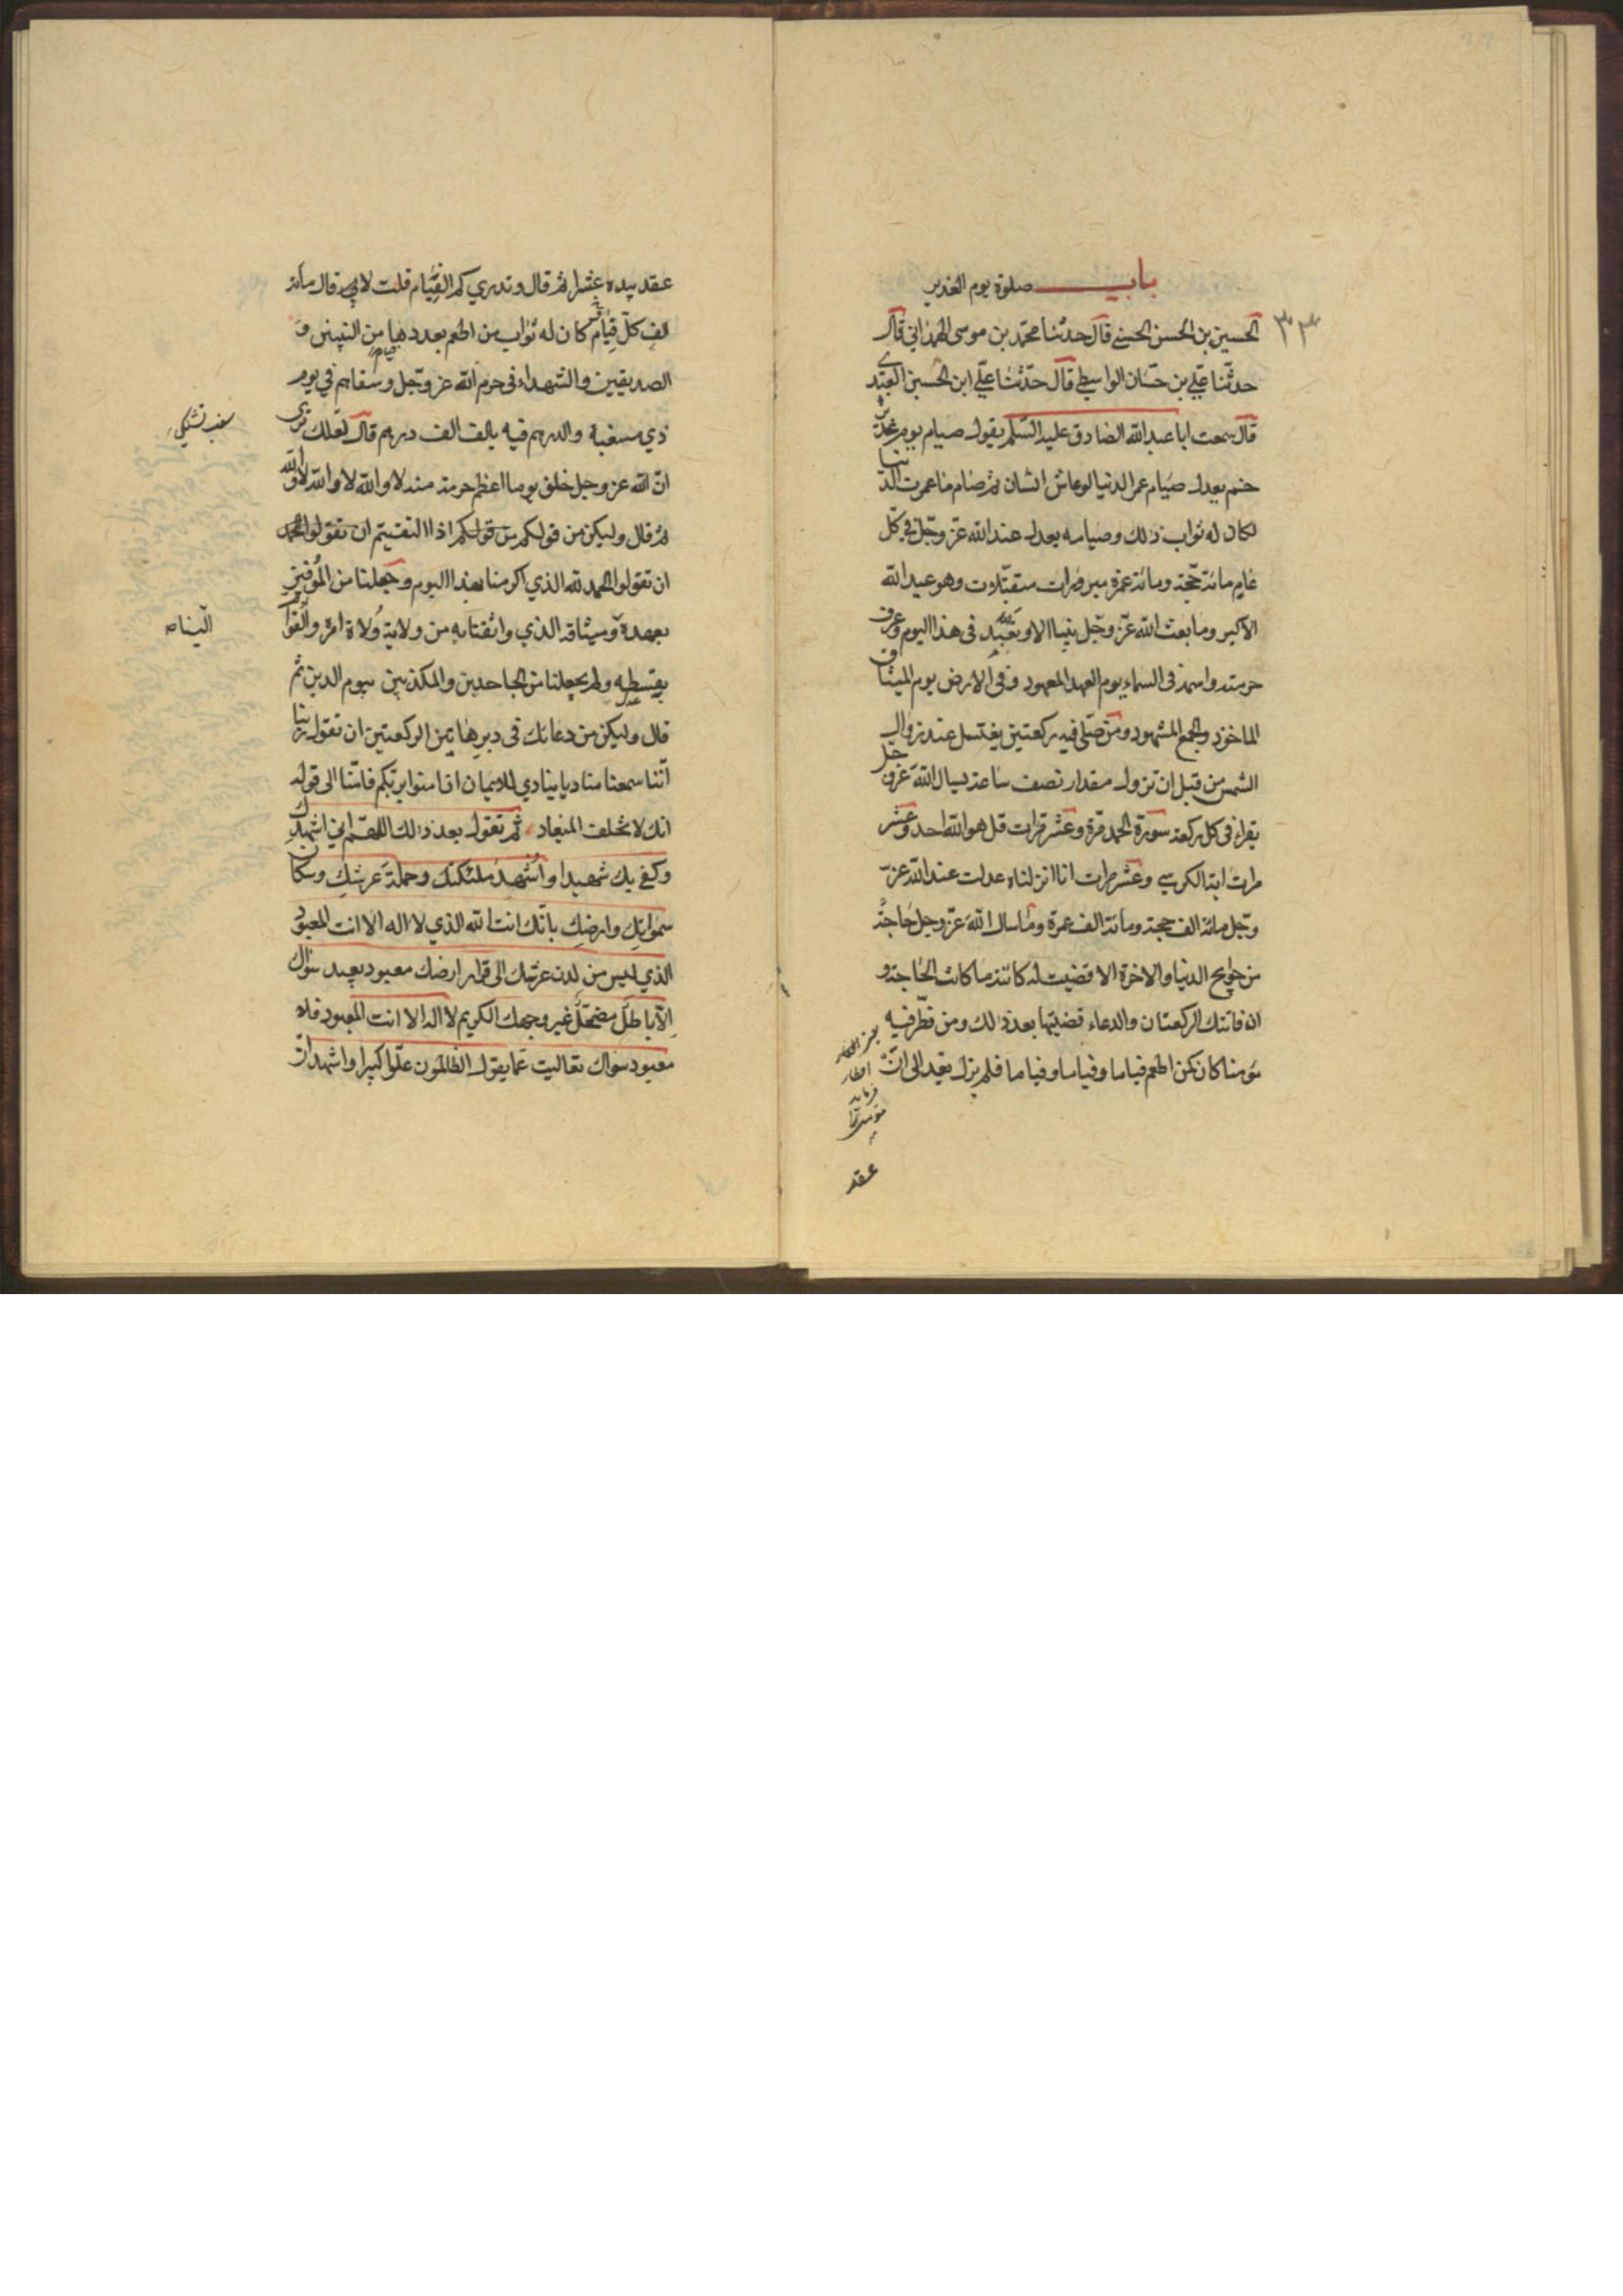 باب صلوة يوم الغدير
الحسين بن الحسن الحسنى قال حدثنا محمد بن موسى الهمدانى قال
حدثنا على بن حسان الواسطى قال حدثنا على ابن الحسين العبدى
قال سمعت ابا عبد الله الصادق عليه السلم يقول صيام يوم غدير
خم يعدل صيام عمر الدنيا لو عاش انسان ثم صام ما عمرت الدنيا
لكان له ثواب ذلك وصيامه يعدل عند الله عز وجل فى كل
عام مائة حجة ومائة عمرة مبرورات متقبلات وهو عيد الله
الاكبر وما بعث الله عز وجل نبيا الا و تعيد فى هذا اليوم وعرف
حرمته واسمه فى السماء يوم العهد المعهود وفى الارض يوم الميثاق
الماخوذ والجمع المشهود ومن صلى فيه ركعتين يغتسل عند زوال
الشمس من قبل ان تزول مقدار نصف ساعة يسال الله عز وجل
يقراء فى كل ركعة سورة الحمد مرة وعشر مرات قل هو الله احد وعشر
مرات اية الكرسى وعشر مرات انا انزلناه عدلت عند الله عز
وجل مائة الف حجة ومائة الف عمرة وما سال الله عز وجل حاجة
من حوايج الدنيا والاخرة الا قضيت له كائنة ما كانت الحاجة و
ان فاتتك الركعتان والدعاء قضيتها بعد ذلك ومن فطر فيه
مؤمنا كان كمن اطعم فياما وفياما وفياما فلم يزل يعد الى ان
افطار
عقد
عقد بيده عشرا ثم قال وتدرى كم الفيام قلت لا قال مائة
الف كل فيام كان له ثواب من اطعم بعددها من النبيين و
الصديقين والشهداء فى حرم الله عز وجل وسقاهم فى يوم
ذى مسغبة والدرهم فيه بالف الف درهم قال لعلك ترى
ان الله عز وجل خلق يوما اعظم حرمة منه لا والله لا والله لا والله
ثم قال وليكن من قولكم اذا التقيتم ان تقولوا الحمد
ان تقولوا الحمد لله الذى اكرمنا بهذا اليوم وجعلنا من الموفين
بعهده وميثاقه الذى واثقنا به من ولاية ولاة امره والقوام
الينا
بقسطه ولم يجعلنا من الجاحدين والمكذبين بيوم الدين ثم
قال وليكن من دعائك فى دبر هاتين الركعتين ان تقول ربنا
اننا سمعنا مناديا ينادى للايمان ان امنوا بربكم فامنا الى قوله
انك لا تخلف الميعاد ثم تقول بعد ذلك اللهم انى اشهدك
وكفى بك شهيدا واشهد ملئكتك وحملة عرشك وسكان
سمواتك وارضك بانك انت الله الذى لا اله الا انت المعبود
الذى ليس من لدن عرشك الى قرار ارضك معبود يعبد سواك
الا باطل مضمحل غير وجهك الكريم لا اله الا انت المعبود فلا
معبود سواك تعاليت عما يقول الظالمون علوا كبيرا واشهد ان